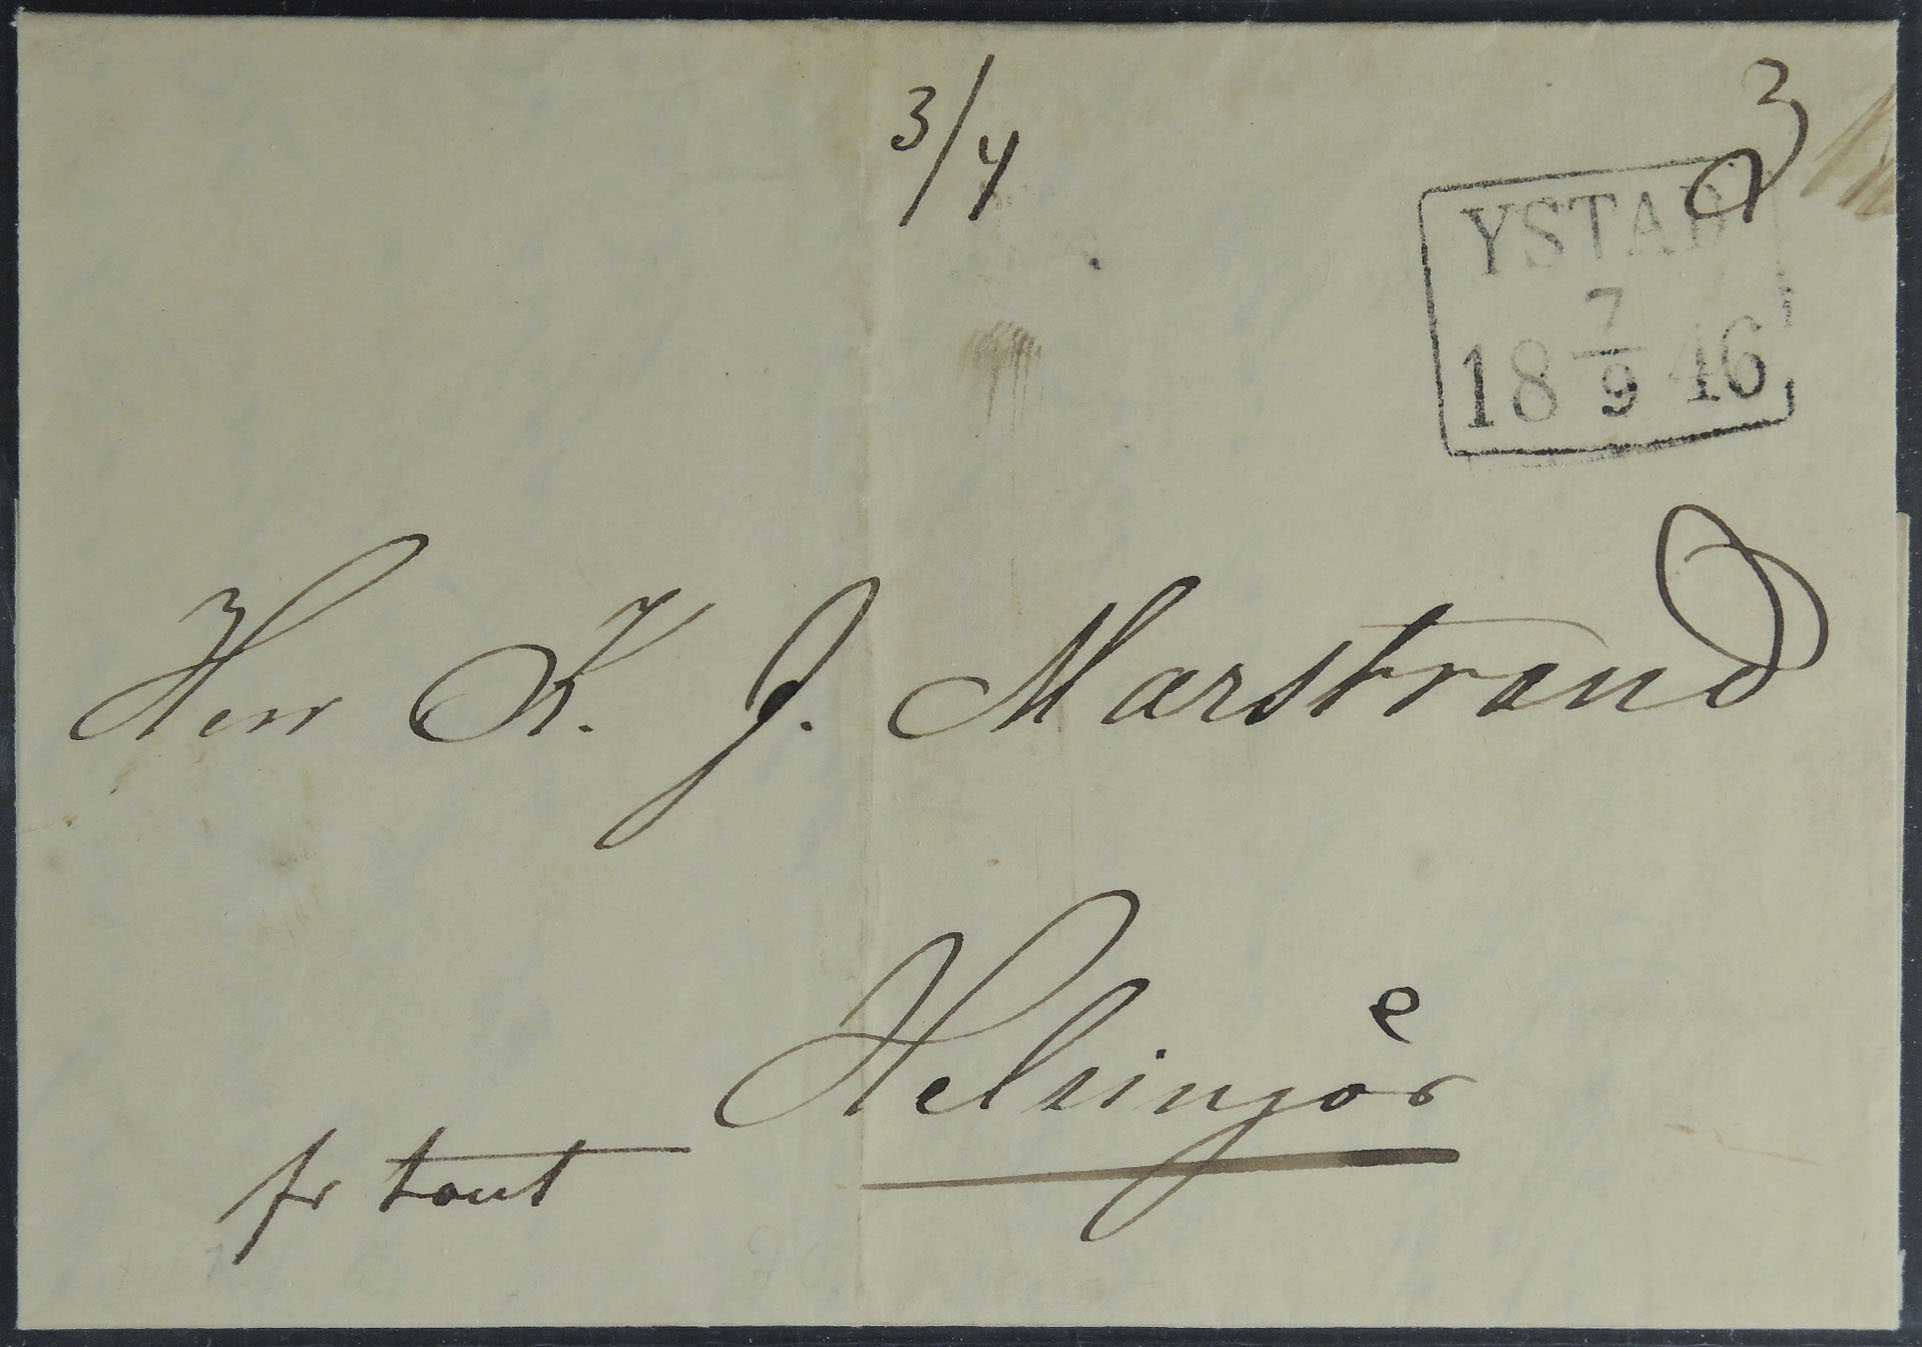 3/4
3
YSTAD
7
18 46
9
Herr K. J. Marstrand
Helsingör
fr tout